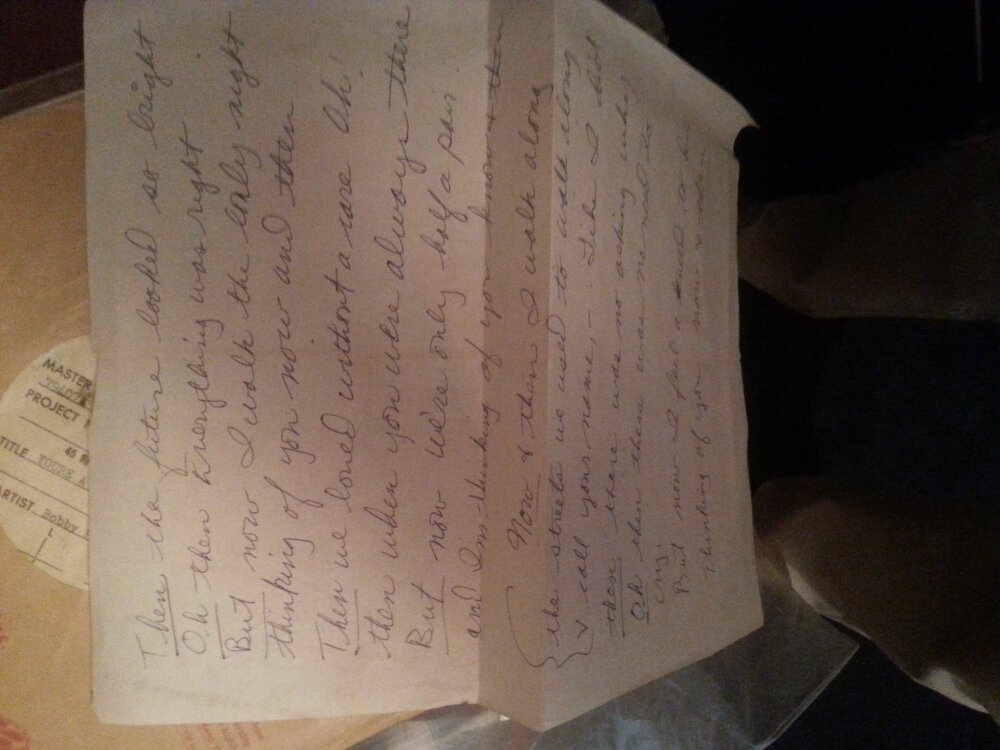 Then the future looked so bright
Oh then Everything was right.
But now I walk the lonly night
thinking of you now and then
Then we loved without a care Oh!
then when you were always there
But now we're only half a pair
and Im thinking of you now & then
Now & then I walk along
the streets we used to walk along
& call your name, - Like I did
then there was no asking why
Oh then there was no need to
cry.
But now I feel a
Thinking of you now & then
MASTER
PROJECT
45 R
TITLE YOURS
ARTIST Bobby